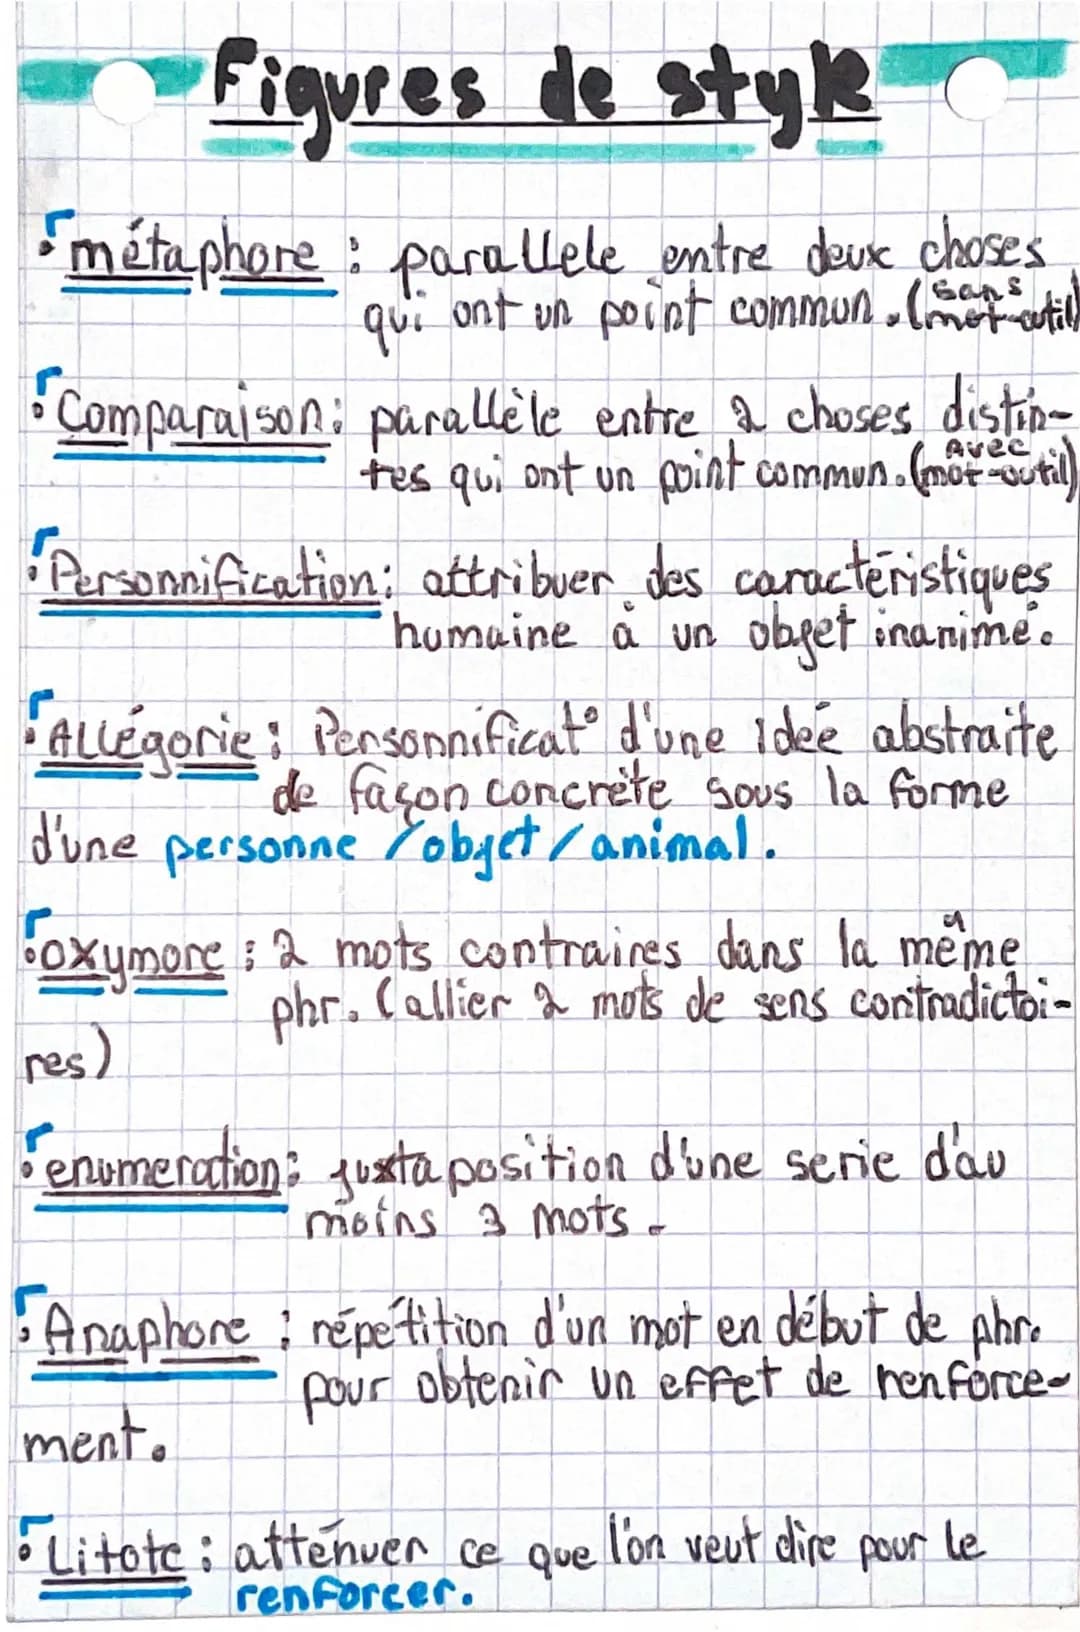 Figures de style
métaphore : parallele entre deux choses
qui ont un point commun. (sans mot-outil)
Comparaison: parallèle entre 2 choses distin-
tes qui ont un point commun. (avec mot-outil)
Personnification: attribuer des caractéristiques
humaine à un objet inanimé.
Allégorie: Personnificat° d'une idée abstraite
de façon concrète sous la forme
d'une personne / objet / animal.
oxymore : 2 mots contraires dans la même
phr. (allier 2 mots de sens contradictoi-
res)
enumeration: juxtaposition d'une serie d'au
moins 3 mots.
Anaphore : répétition d'un mot en début de phr.
pour obtenir un effet de renforce-
ment.
Litote : atténuer ce que l'on veut dire pour le
renforcer.